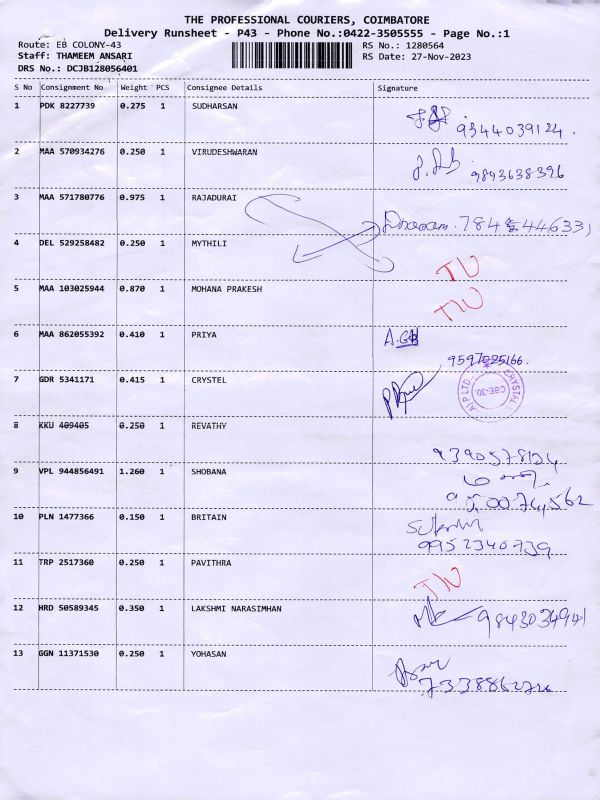 THE PROFESSIONAL COURIERS, COIMBATORE
Delivery Runsheet - P43 - Phone No.:0422-3505555 - Page No.:1
Route: EB COLONY-43 RS No.: 1280564
Staff: THAMEEM ANSARI RS Date: 27-Nov-2023
DRS No.: DCJB128056401
S No Consignment No Weight PCS Consignee Details Signature
1 PDK 8227739 0.275 1 SUDHARSAN
9344039124.
2 MAA 570934276 0.250 1 VIRUDESHWARAN
9893638396
3 MAA 571780776 0.975 1 RAJADURAI
4 DEL 529258482 0.250 1 MYTHILI
5 MAA 103025944 0.870 1 MOHANA PRAKESH
6 MAA 862055392 0.410 1 PRIYA
9597025166.
7 GDR 5341171 0.415 1 CRYSTEL
CRYSTAL
8 KKU 409405 0.250 1 REVATHY
9390578124
9 VPL 944856491 1.260 1 SHOBANA
10 PLN 1477366 0.150 1 BRITAIN
9952340739
11 TRP 2517360 0.250 1 PAVITHRA
12 HRD 50589345 0.350 1 LAKSHMI NARASIMHAN
9843034941
13 GGN 11371530 0.250 1 YOHASAN